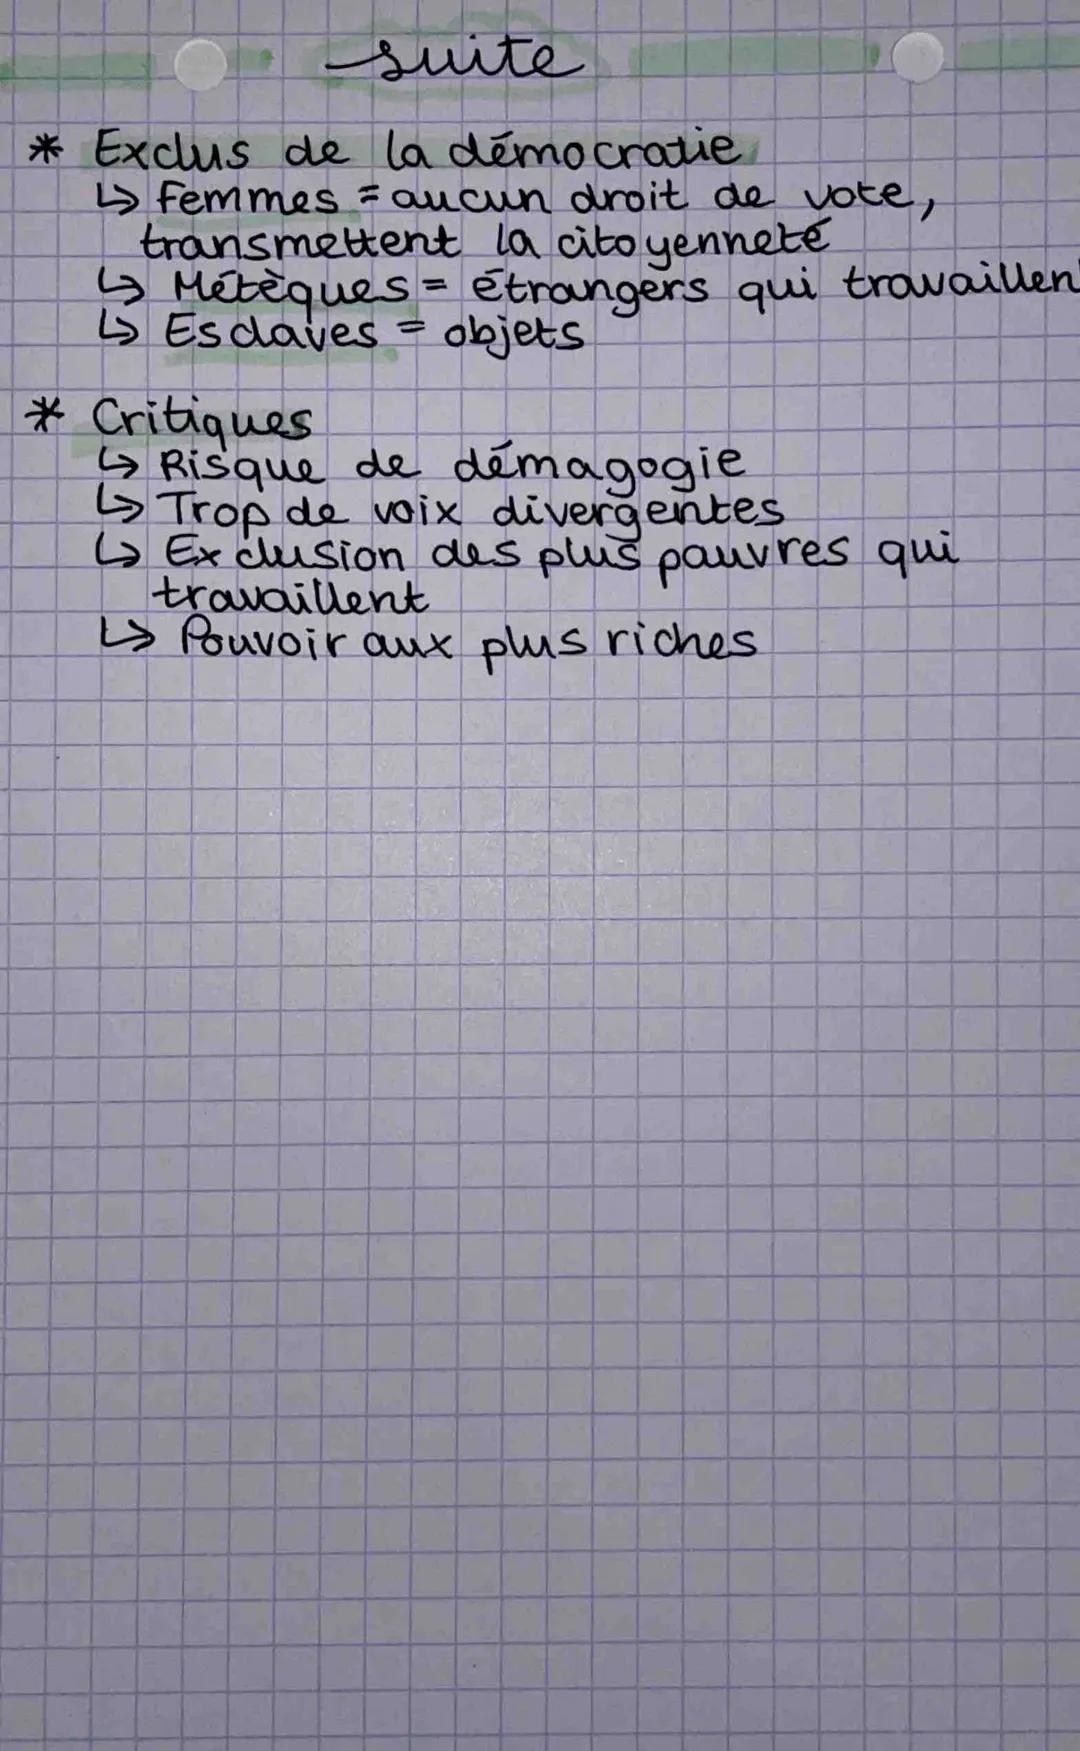 suite
* Exclus de la démocratie
↳ Femmes = aucun droit de vote,
transmettent la citoyenneté
↳ Métèques = étrangers qui travaillen
↳ Esclaves = objets
* Critiques
↳ Risque de démagogie
↳ Trop de voix divergentes
↳ Exclusion des plus pauvres qui
travaillent
↳ Pouvoir aux plus riches